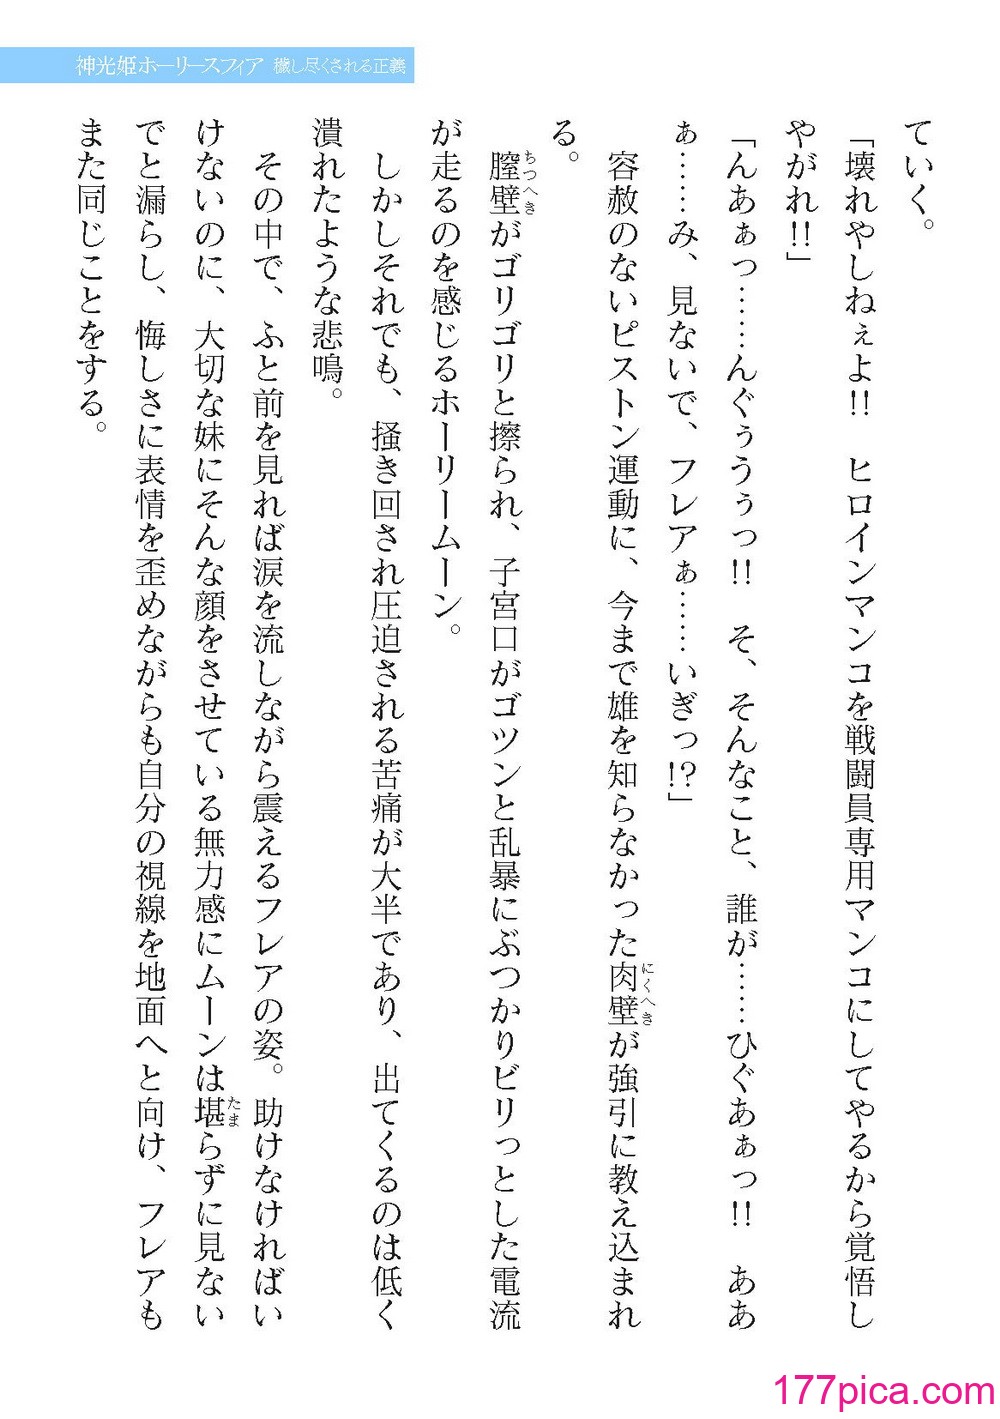 神光姫ホーリースフィア 穢し尽くされる正義
ていく。
「壊れやしねぇよ!! ヒロインマンコを戦闘員専用マンコにしてやるから覚悟し
やがれ!!」
「んあぁっ……んぐぅうぅっ!! そ、そんなこと、誰が……ひぐあぁっ!! ああ
ぁ……み、見ないで、フレアぁ……いぎっ!?」
容赦のないピストン運動に、今まで雄を知らなかった肉壁が強引に教え込まれ
にくへき
る。
膣壁がゴリゴリと擦られ、子宮口がゴツンと乱暴にぶつかりビリっとした電流
ちつへき
が走るのを感じるホーリームーン。
しかしそれでも、掻き回され圧迫される苦痛が大半であり、出てくるのは低く
潰れたような悲鳴。
その中で、ふと前を見れば涙を流しながら震えるフレアの姿。助けなければい
けないのに、大切な妹にそんな顔をさせている無力感にムーンは堪らずに見ない
たま
でと漏らし、悔しさに表情を歪めながらも自分の視線を地面へと向け、フレアも
また同じことをする。
177pica.com